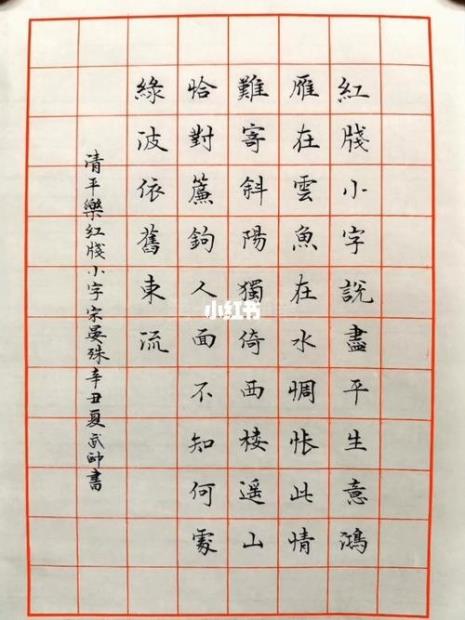 紅牋小字說盡平生意鴻
雁在雲魚在水惆悵此情
難寄斜陽獨倚西樓遥山
恰對簾鉤人面不知何處
綠波依舊東流
清平樂紅牋小字宋晏殊辛丑夏武帥書
小红书